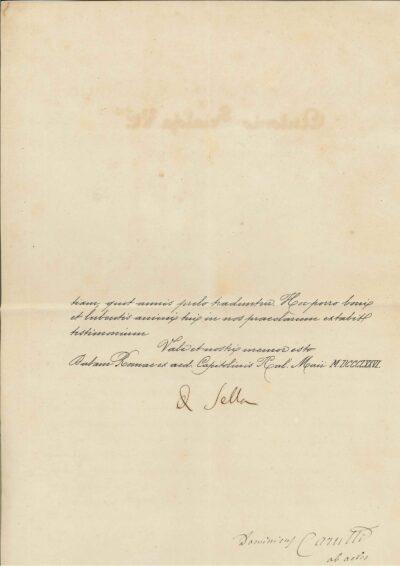 tiam, quot annis prelo traduntur. Hoc porro boni
et lubentis animi tui in nos praeclarum extabit
testimonium
Vale et nostri memor esto
Datam Romae ex aed. Capitolinis Kal. Maii
Q Sella
Dominicus Carutti
ab actis